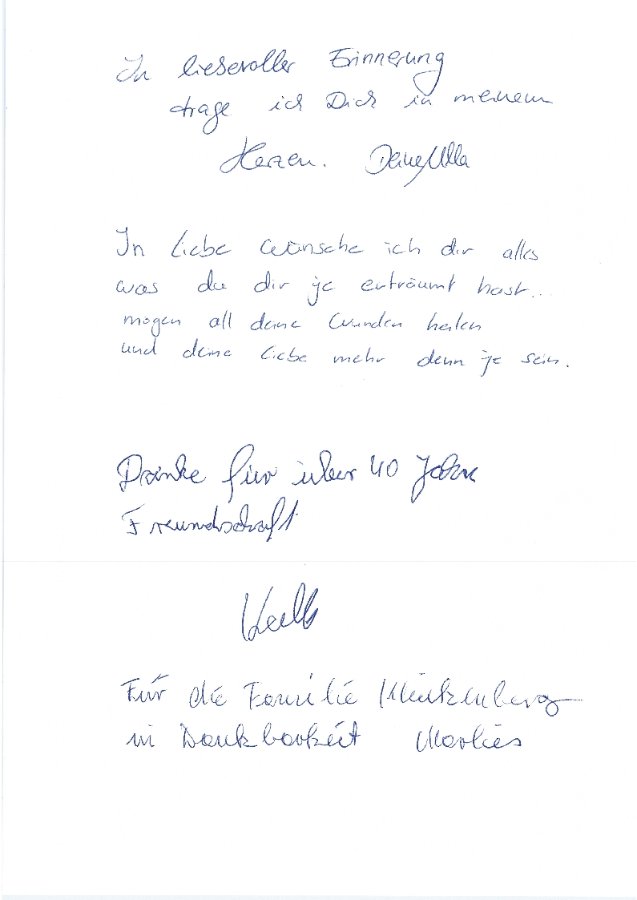 In liebevoller Erinnerung
trage ich Dich in meinem
Herzen. Deine Ulla
In Liebe wünsche ich dir alles
was du dir je erträumt hast...
mögen all deine Wunden heilen
und deine Liebe mehr denn je sein.
Danke für über 40 Jahre
Freundschaft
Für die Familie
in Dankbarkeit Marlies